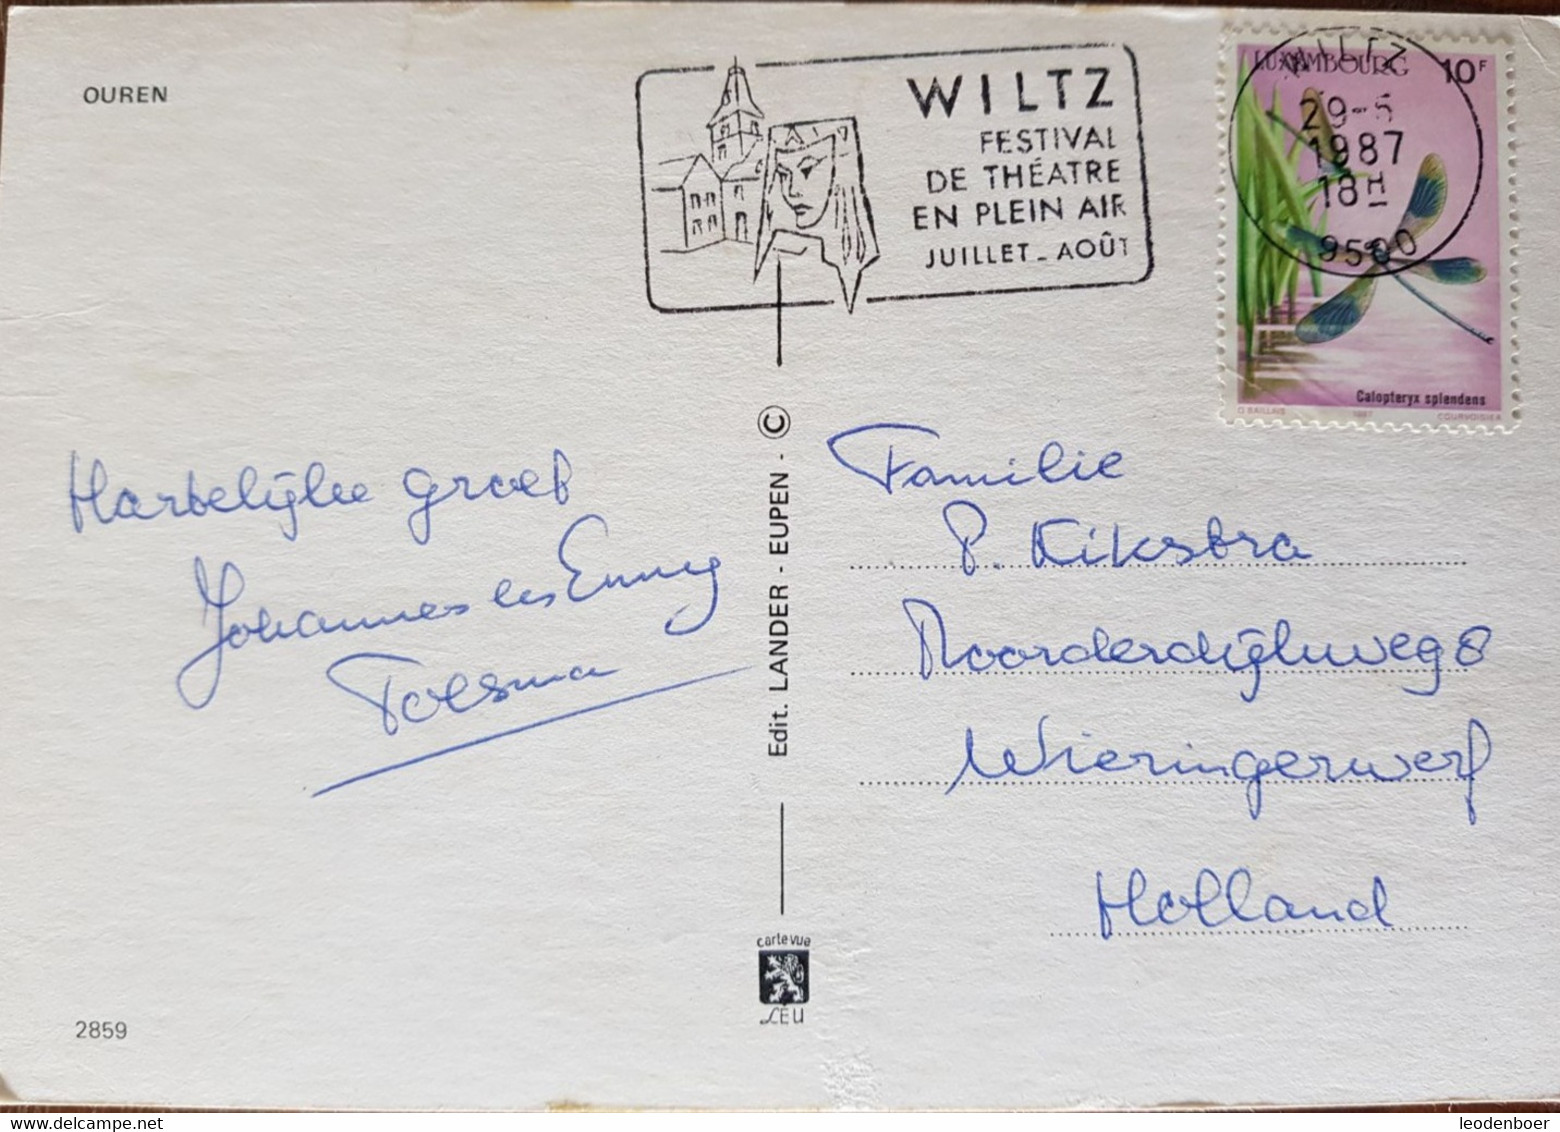 OUREN
WILTZ
FESTIVAL
DE THÉATRE
EN PLEIN AIR
JUILLET - AOÛT
WILTZ
29-5
1987
18H
9500
LUXEMBOURG 10F
Calopteryx splendens
O BAILLAIS 1987 COURVOISIER
Hartelijke groet
Johannes en Enny
Tolsma
Edit. LANDER - EUPEN - ©
Familie
P. Kikstra
Noorderdijkweg 8
Wieringerwerf
Holland
carte vue
LEU
2859
leodenboer